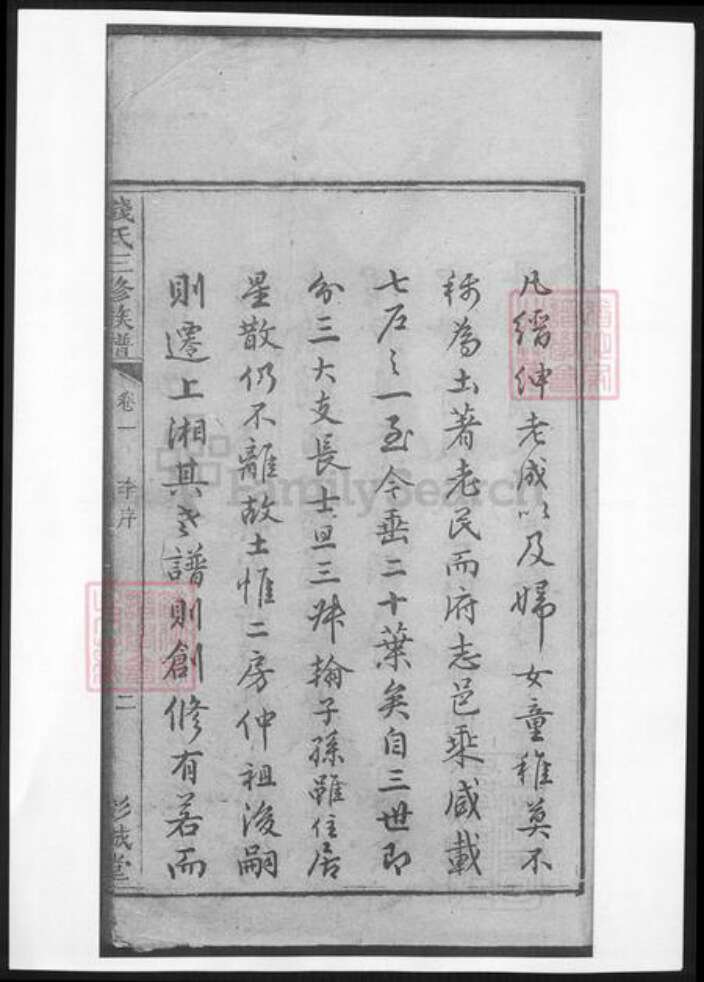 凡缙紳老成以及婦女童稚莫不
稱為土著老民而府志邑乘咸載
七石之一至今垂二十葉矣自三世即
分三大支長士旦三叔翰子孫雖住居
星散仍不離故土惟二房仲祖後嗣
則遷上湘其老譜則創修有若而
錢氏三修族譜
卷一
序
二
彭城堂
FamilySearch